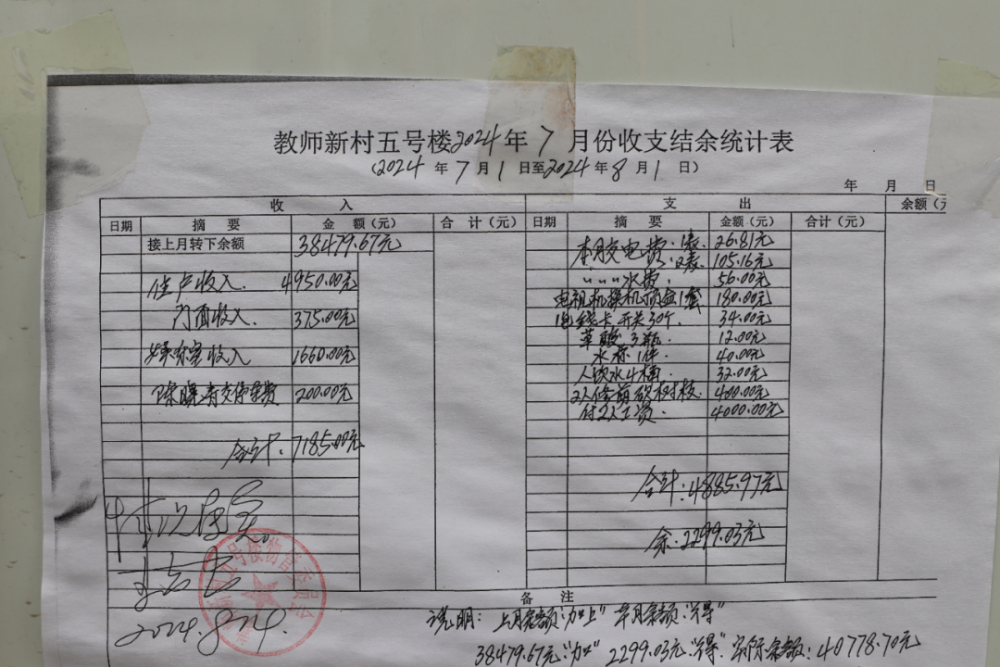 教师新村五号楼2024年7月份收支结余统计表
(2024年7月1日至2024年8月1日)
年 月 日
收 入 支 出 余额(元
日期 摘 要 金 额(元) 合 计(元) 日期 摘 要 金额(元) 合计(元)
接上月转下余额 38479.67元
住户收入. 4950.00元
门面收入. 375.00元
娱乐室收入 1660.00元
交停车费 200.00元
合计:7185.00元
本月交电费:1表. 26.81元
:2表. 105.16元
〃〃〃水费: 56.00元
电视机换机顶盒1套 180.00元
电线卡、开关30个. 34.00元
草酸3瓶. 12.00元
水表1件. 40.00元
人饮水4桶. 32.00元
2人修剪 树枝. 400.00元
付2人工资. 4000.00元
合计:4885.97元
余:2299.03元
2024.8.24.
备 注
说明: 上月余额"加上"本月余额"得"
38479.67元"加"2299.03元"得"实际余额:40778.70元